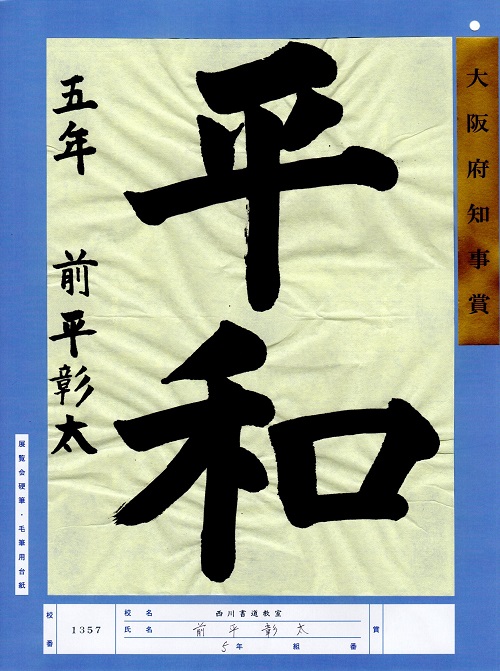 大阪府知事賞
平和
五年 前平彰太
展覧会硬筆・毛筆用台紙
校番 1357
校名 西川書道教室
氏名 前平彰太
5年 組 番
賞